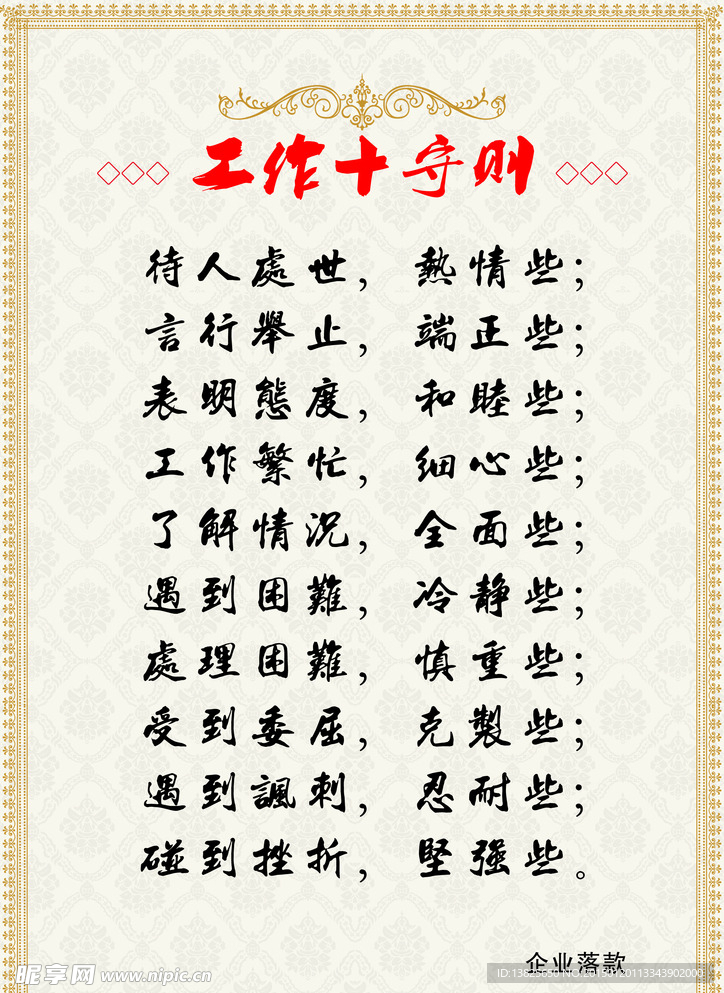 工作十守则
待人處世， 熱情些；
言行舉止， 端正些；
表明態度， 和睦些；
工作繁忙， 细心些；
了解情况， 全面些；
遇到困難， 冷静些；
處理困難， 慎重些；
受到委屈， 克製些；
遇到諷刺， 忍耐些；
碰到挫折， 堅强些。
企业落款
昵享网 www.nipic.cn